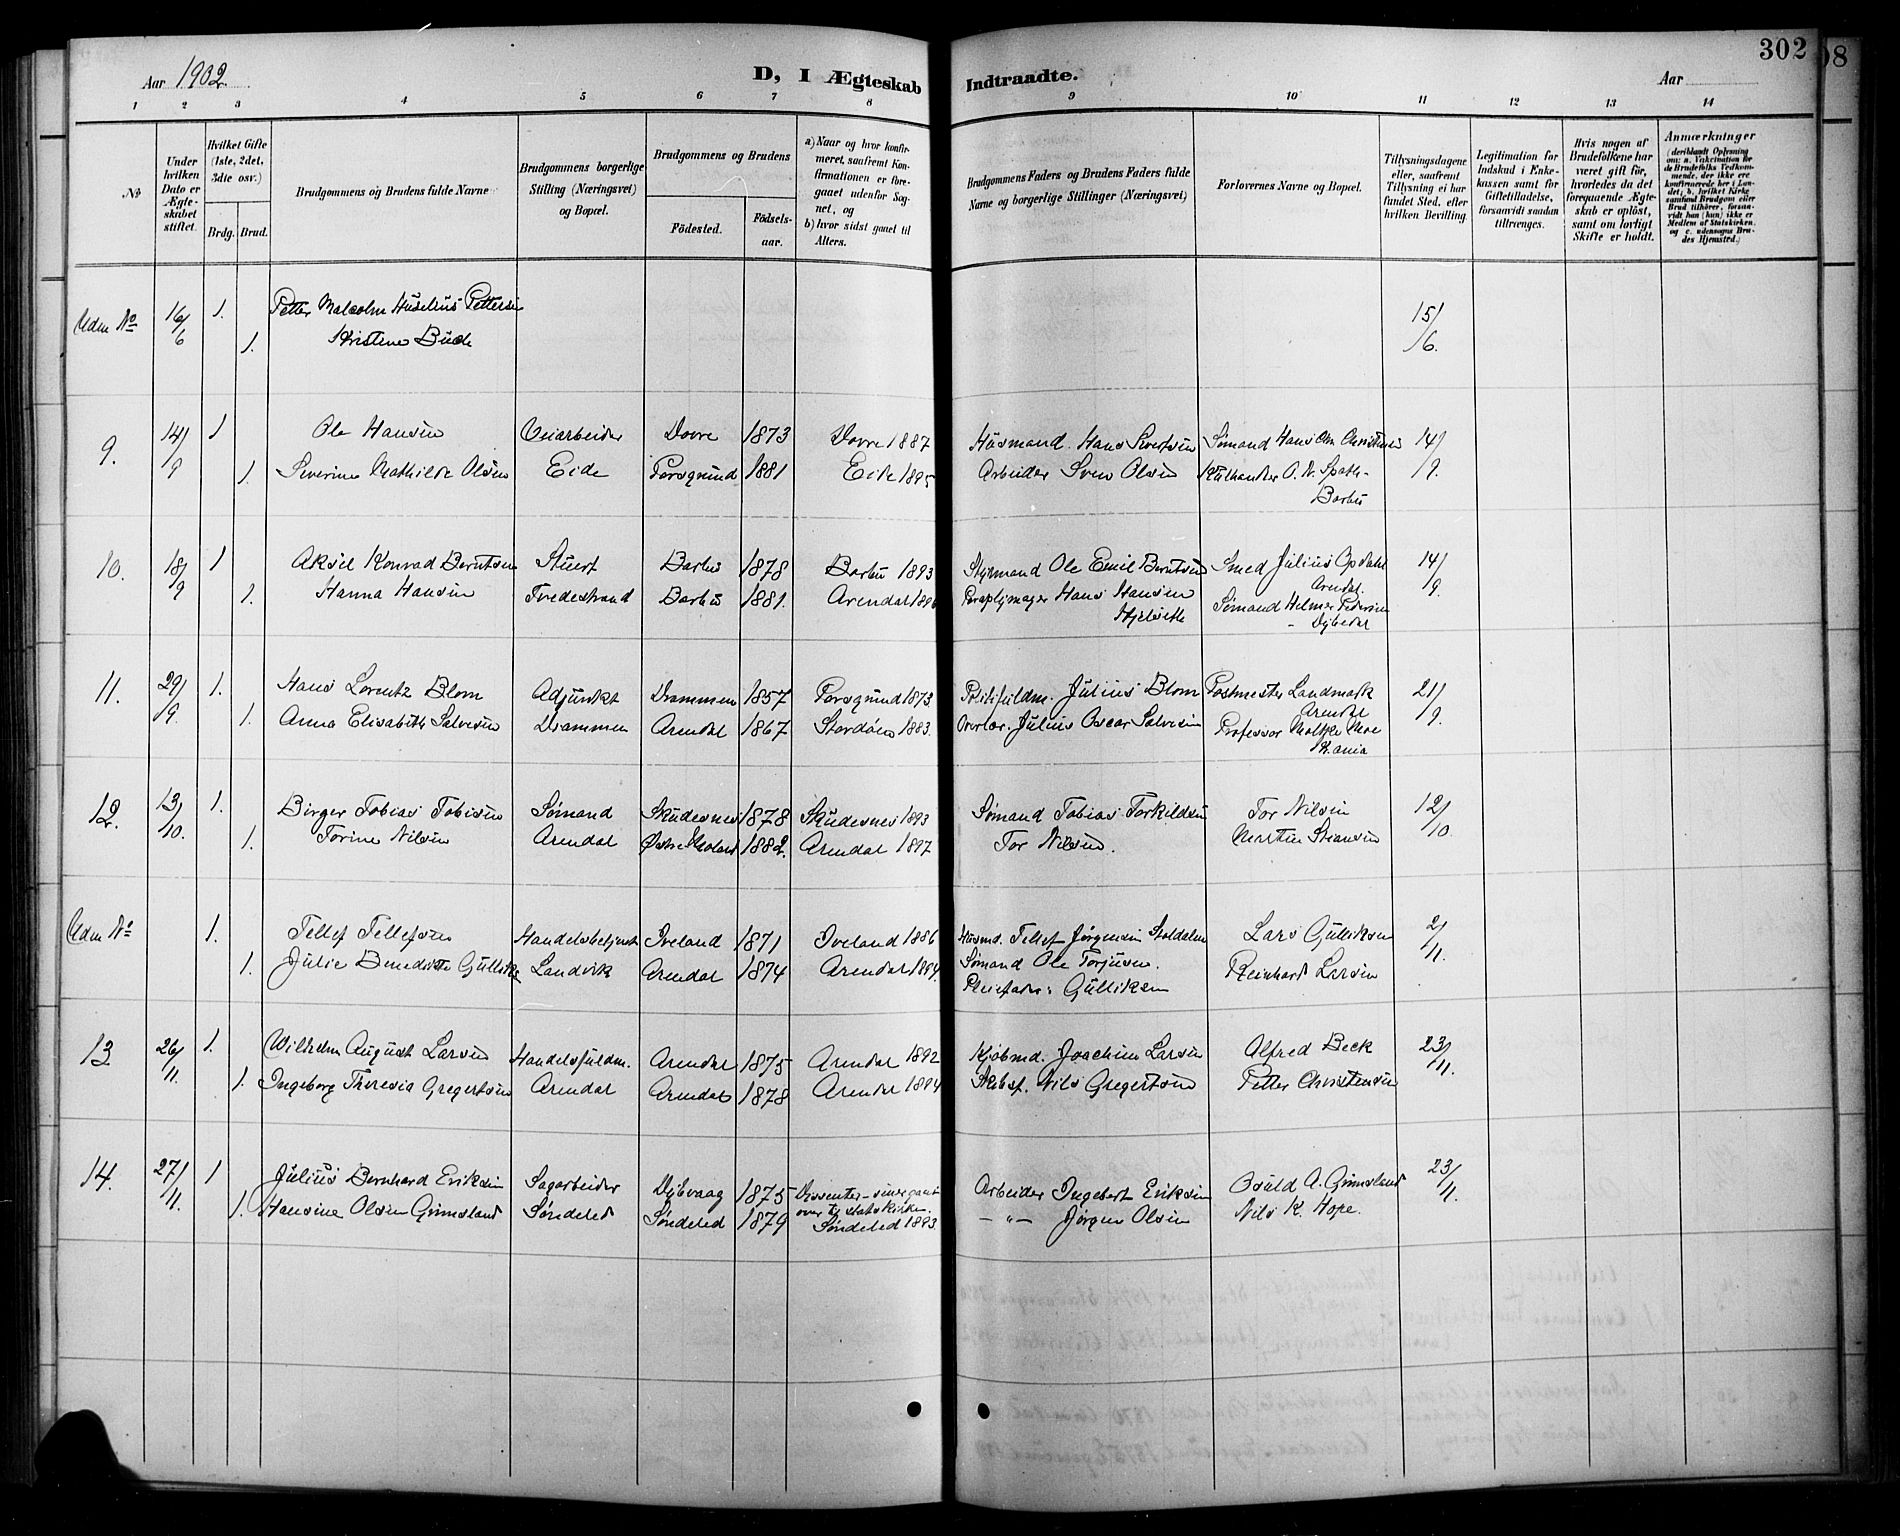 302
Aar 1902
D, I Ægteskab
Indtraadte.
Aar
1 2 3 4 5 6 7 8
9 10 11 12 13 14
No
Under hvilken Dato er Ægteskabet stiftet.
Hvilket Gifte (1ste, 2det, 3die osv.)
Brdg. Brud.
Brudgommens og Brudens fulde Navne
Brudgommens borgerlige Stilling (Næringsvei) og Bopæl.
Brudgommens og Brudens
Fødested.
Fødselsaar.
a) Naar og hvor konfirmeret, saafremt Konfirmationen er foregaaet udenfor Sognet, og
b) hvor sidst gaaet til Alters.
Brudgommens Faders og Brudens Faders fulde Navne og borgerlige Stillinger (Næringsvei)
Forlovernes Navne og Bopæl.
Tillysningsdagene eller, saafremt Tillysning ei har fundet Sted, efter hvilken Bevilling.
Legitimation for Indskud i Enkekassen samt for Giftetilladelse, forsaavidt saadan tiltrænges.
Hvis nogen af Brudefolkene har været gift før, hvorledes da det foregaaende Ægteskab er opløst, samt om lovligt Skifte er holdt.
Anmærkninger
(deriblandt Oplysning om: a. Vakcination for de Brudefolks Vedkommende, der ikke ere konfirmerede her i Landet; b. hvilket Kirkesamfund Brudgom eller Brud tilhører, forsaavidt han (hun) ikke er Medlem af Statskirken. og c. udensogns Brudes Hjemsted.)
Uden No 16/6 1. Petter Malcolm Huselius Pettersen 15/6.
1. Kristine Bude
9. 14/9 1 Ole Hansen Veiarbeider Dovre 1873 Dovre 1887 Husmand. Hans Sivertsen Sømand Hans Chr. Christensen 14/9.
1. Severine Mathilde Olsen Eide Porsgrund 1881 Eide 1895 Arbeider Sven Olsen O. N. Spoth-
Barbu
10. 18/9 1 Aksel Konrad Berntsen Stuert Barbu 1878 Barbu 1893 Styrmand Ole Emil Berntsen Smed Julius Opdahl 14/9.
Arendal.
1. Hanna Hansen Tvedestrand Barbu 1881. Arendal 1896 Paraplymager Hans Hansen Sømand Helmer Pedersen
- Dybedal
11. 29/9 1. Hans Lorentz Blom Adjunkt Drammen 1857 Porsgrund 1873 Julius Blom Postmester Landmark 21/9.
Arendal
1. Anna Elisabeth Salvesen Drammen Arendal 1867 Stordøen 1883. Overlær. Julius Oscar Salvesen Professor Moltke Moe
Kr.ania
12. 13/10. 1. Birger Tobias Tobisen Sømand Skudesnes 1878 Skudesnes 1893 Sømand Tobias Torkildsen Tor Nilsen 12/10.
1. Torine Nilsen Arendal Østre Moland 1882. Arendal 1897 Tor Nilsen. Martin Steansen
Uden No 1. Tellef Tellefsen Handelsbetjent Iveland 1871 Iveland 1886 Husmd. Tellef Jørgensen Stoldalen Lars Gulliksen 2/11.
1. Julie Benedikte Gulliksen Landvik Arendal 1874 Arendal 1894. Sømand Ole Torjusen. Reinhard Larsen
Pleiefader: Gulliksen
13 26/11. 1. Wilhelm August Larsen Handelsfuldm. Arendal 1875 Arendal 1892 Kjøbmd. Joachim Larsen Alfred Beck 23/11.
1. Ingeborg Theresia Gregertsen Arendal Arendal 1878 Arendal 1894 Skibsf. Nils Gregertsen Petter Christensen
14. 27/11. 1 Julius Bernhard Eriksen Sagarbeider Dybvaag 1875 Dissenter - senere gaaet over til statskirken. Arbeider Ingebert Eriksen Osuld A. Grimsland 23/11.
1. Hansine Olsen Grimsland Søndeled Søndeled 1879 Søndeled 1893. - " - Jørgen Olsen Nils K. Hope.